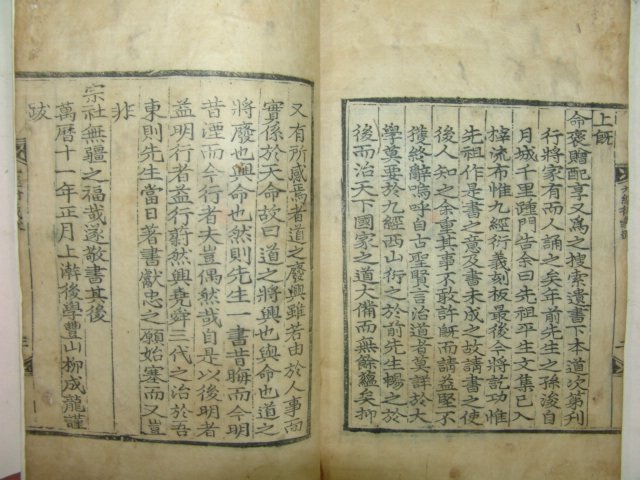 上旣
命褒贈配享又爲之搜索遺書下本道次第刊
行將家有而人誦之矣年前先生之孫浚自
月城千里踵門告余曰先祖平生文集已入
梓流布惟九經衍義刻板最後今將訖功惟
先祖作是書之意及書未成之故請書之使
後人知之余重其事不敢許旣而請益堅不
獲終辭嗚呼自古聖賢言治道者莫詳於大
學莫要於九經西山衍之於前先生暢之於
後而治天下國家之道大備而無餘蘊矣抑
又有所感焉者道之廢興雖若由於人事而
實係於天命故曰道之將興也與命也道之
將廢也與命也然則先生一書昔晦而今明
昔湮而今行者夫豈偶然哉自是以後明者
益明行者益行蔚然興堯舜三代之治於吾
東則先生當日著書獻忠之願始塞而又豈
非
宗社無疆之福哉遂敬書其後
萬曆十一年正月上澣後學豐山柳成龍謹
跋